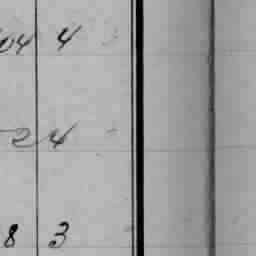 04 4
24
8 3